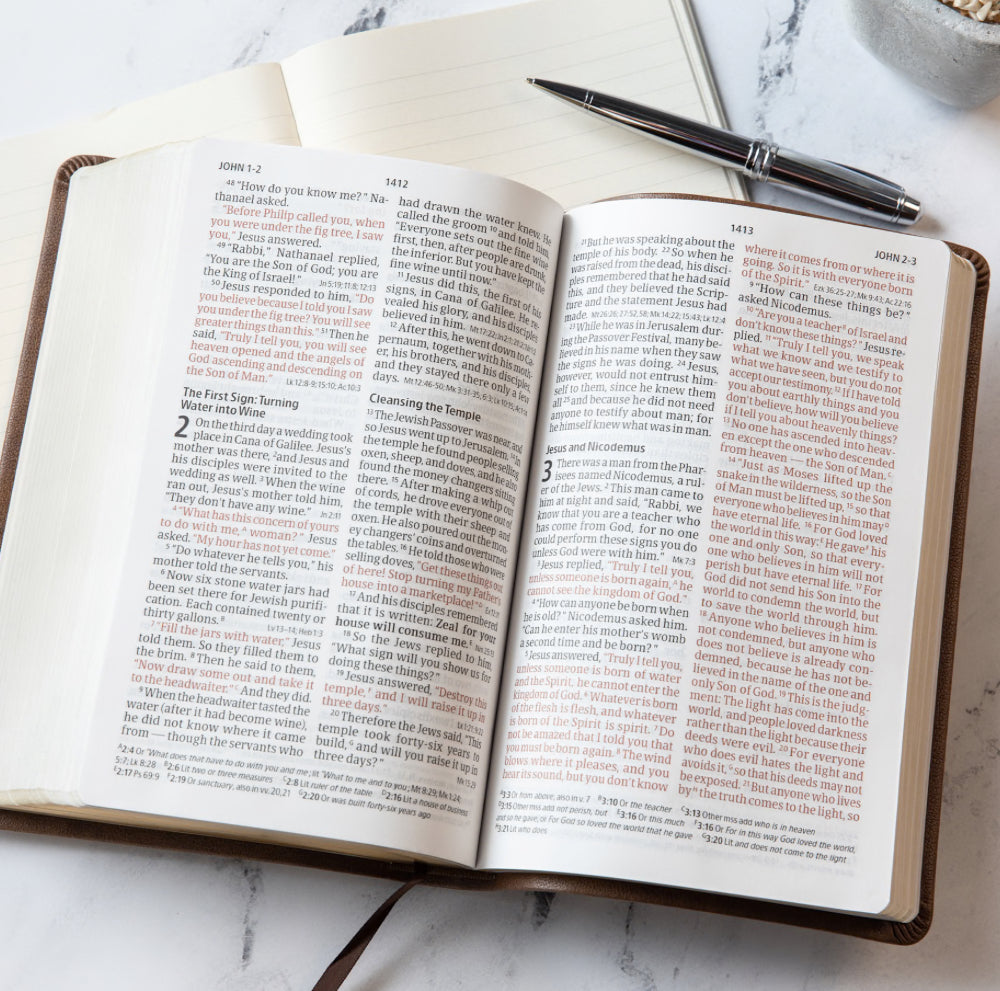 JOHN 1-2
1412
48 "How do you know me?" Na-
thanael asked.
"Before Philip called you, when
you were under the fig tree, I saw
you," Jesus answered.
49 "Rabbi," Nathanael replied,
"You are the Son of God; you are
the King of Israel!" Jn 5:19; 11:8; 12:13
50 Jesus responded to him, "Do
you believe because I told you I saw
you under the fig tree? You will see
greater things than this." 51 Then he
said, "Truly I tell you, you will see
heaven opened and the angels of
God ascending and descending on
the Son of Man." Lk 12:8-9; 15:10; Ac 10:3
The First Sign: Turning
Water into Wine
2 On the third day a wedding took
place in Cana of Galilee. Jesus's
mother was there, 2 and Jesus and
his disciples were invited to the
wedding as well. 3 When the wine
ran out, Jesus's mother told him,
"They don't have any wine." Jn 2:11
4 "What has this concern of yours
to do with me, A woman?" Jesus
asked. "My hour has not yet come."
5 "Do whatever he tells you," his
mother told the servants.
6 Now six stone water jars had
been set there for Jewish purifi-
cation. Each contained twenty or
thirty gallons. B
Lv 13-14; Heb 1:3
7 "Fill the jars with water," Jesus
told them. So they filled them to
the brim. 8 Then he said to them,
"Now draw some out and take it
to the headwaiter." C And they did.
9 When the headwaiter tasted the
water (after it had become wine),
he did not know where it came
from — though the servants who
had drawn the water knew. He
called the groom 10 and told him,
"Everyone sets out the fine wine
first, then, after people are drunk,
the inferior. But you have kept the
fine wine until now."
11 Jesus did this, the first of his
signs, in Cana of Galilee. He re-
vealed his glory, and his disciples
believed in him.
12 After this, he went down to Ca-
pernaum, together with his moth-
er, his brothers, and his disciples,
and they stayed there only a few
days. Mt 12:46-50; Mk 3:31-35; 6:3; Lk 10:15; Ac 1:14
Cleansing the Temple
13 The Jewish Passover was near, and
so Jesus went up to Jerusalem. 14 In
the temple he found people selling
oxen, sheep, and doves, and he also
found the money changers sitting
there. 15 After making a whip out
of cords, he drove everyone out of
the temple with their sheep and
oxen. He also poured out the mon-
ey changers' coins and overturned
the tables. 16 He told those who were
selling doves, "Get these things out
of here! Stop turning my Father's
house into a marketplace!" D
17 And his disciples remembered
that it is written: Zeal for your
house will consume me. E
18 So the Jews replied to him,
"What sign will you show us for
doing these things?"
19 Jesus answered, "Destroy this
temple, F and I will raise it up in
three days."
20 Therefore the Jews said, "This
temple took forty-six years to
build, G and will you raise it up in
three days?" Mk 15:29
A 2:4 Or "What does that have to do with you and me; lit "What to me and to you; Mt 8:29; Mk 1:24;
5:7; Lk 8:28 B 2:6 Lit two or three measures C 2:8 Lit ruler of the table D 2:16 Lit a house of business
E 2:17 Ps 69:9 F 2:19 Or sanctuary, also in vv. 20,21 G 2:20 Or was built forty-six years ago
1413
JOHN 2-3
21 But he was speaking about the
temple of his body. 22 So when he
was raised from the dead, his disci-
ples remembered that he had said
this, and they believed the Scrip-
ture and the statement Jesus had
made. Mt 26:26; 27:52,58; Mk 14:22; 15:43; Lk 12:4
23 While he was in Jerusalem dur-
ing the Passover Festival, many be-
lieved in his name when they saw
the signs he was doing. 24 Jesus,
however, would not entrust him-
self to them, since he knew them
all 25 and because he did not need
anyone to testify about man; for
he himself knew what was in man.
Jesus and Nicodemus
3 There was a man from the Phar-
isees named Nicodemus, a rul-
er of the Jews. 2 This man came to
him at night and said, "Rabbi, we
know that you are a teacher who
has come from God, for no one
could perform these signs you do
unless God were with him." Mk 7:3
3 Jesus replied, "Truly I tell you,
unless someone is born again, A he
cannot see the kingdom of God."
4 "How can anyone be born when
he is old?" Nicodemus asked him.
"Can he enter his mother's womb
a second time and be born?"
5 Jesus answered, "Truly I tell you,
unless someone is born of water
and the Spirit, he cannot enter the
kingdom of God. 6 Whatever is born
of the flesh is flesh, and whatever
is born of the Spirit is spirit. 7 Do
not be amazed that I told you that
you must be born again. 8 The wind
blows where it pleases, and you
hear its sound, but you don't know
where it comes from or where it is
going. So it is with everyone born
of the Spirit." Ezk 36:25-27; Mk 9:43; Ac 22:16
9 "How can these things be?"
asked Nicodemus.
10 "Are you a teacher B of Israel and
don't know these things?" Jesus re-
plied. 11 "Truly I tell you, we speak
what we know and we testify to
what we have seen, but you do not
accept our testimony. 12 If I have told
you about earthly things and you
don't believe, how will you believe
if I tell you about heavenly things?
13 No one has ascended into heav-
en except the one who descended
from heaven — the Son of Man. C
14 "Just as Moses lifted up the
snake in the wilderness, so the Son
of Man must be lifted up, 15 so that
everyone who believes in him may D
have eternal life. 16 For God loved
the world in this way: E He gave F his
one and only Son, so that every-
one who believes in him will not
perish but have eternal life. 17 For
God did not send his Son into the
world to condemn the world, but
to save the world through him.
18 Anyone who believes in him is
not condemned, but anyone who
does not believe is already con-
demned, because he has not be-
lieved in the name of the one and
only Son of God. 19 This is the judg-
ment: The light has come into the
world, and people loved darkness
rather than the light because their
deeds were evil. 20 For everyone
who does evil hates the light and
avoids it, G so that his deeds may not
be exposed. 21 But anyone who lives
by H the truth comes to the light, so
A 3:3 Or from above; also in v. 7 B 3:10 Or the teacher C 3:13 Other mss add who is in heaven
D 3:15 Other mss add not perish, but E 3:16 Or this much F 3:16 Or For in this way God loved the world,
and so he gave, or For God so loved the world that he gave G 3:20 Lit and does not come to the light
H 3:21 Lit who does